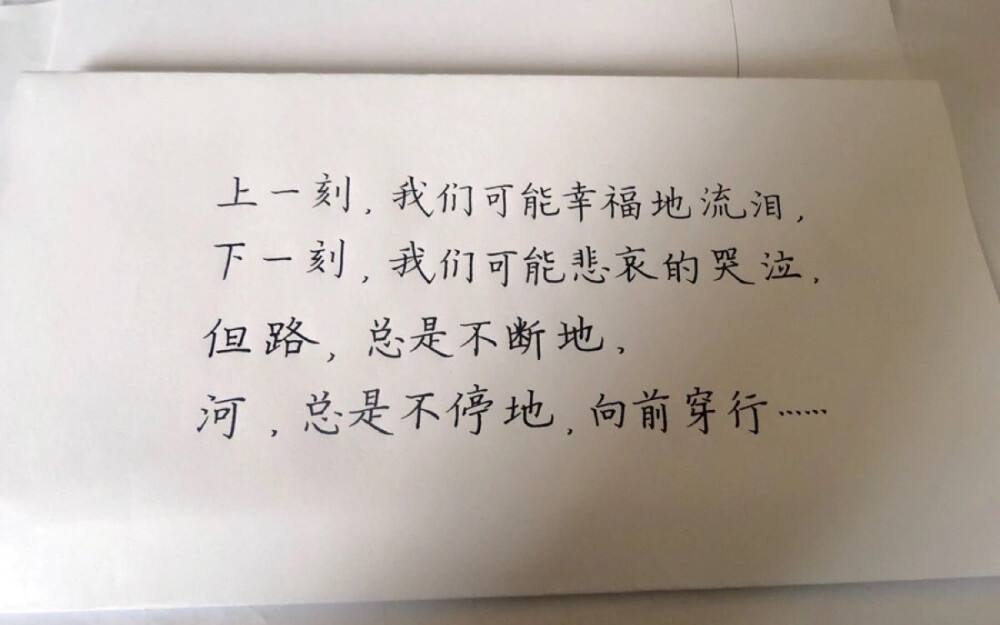 上一刻，我们可能幸福地流泪，
下一刻，我们可能悲哀的哭泣，
但路，总是不断地，
河，总是不停地，向前穿行……